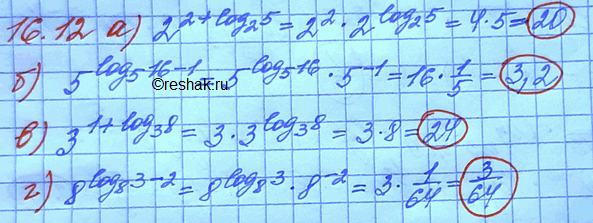 16.12 а) 2^{2+log_2 5} = 2^2 · 2^{log_2 5} = 4·5 = 20
б) 5^{log_5 16-1} = 5^{log_5 16} · 5^{-1} = 16 · 1/5 = 3,2
©reshak.ru
в) 3^{1+log_3 8} = 3 · 3^{log_3 8} = 3·8 = 24
г) 8^{log_8 3-2} = 8^{log_8 3} · 8^{-2} = 3 · 1/64 = 3/64